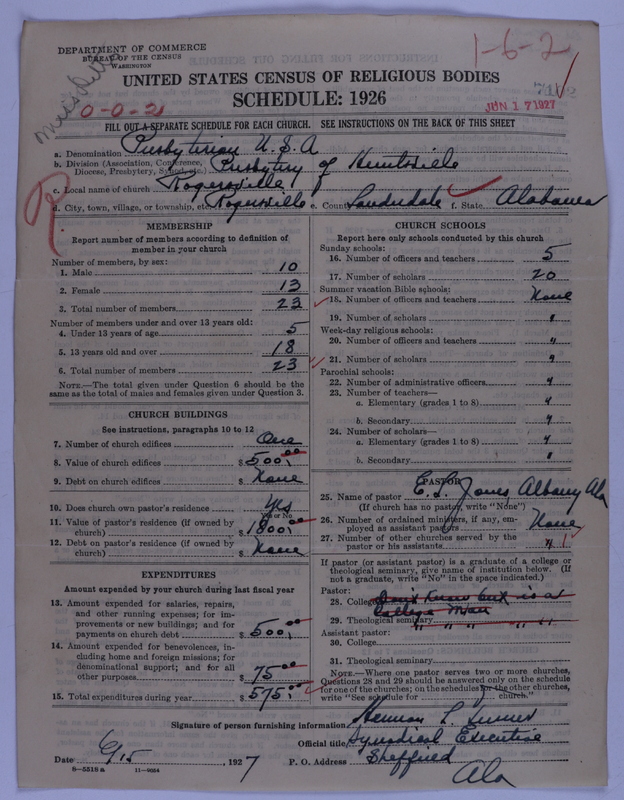 DEPARTMENT OF COMMERCE
BUREAU OF THE CENSUS
WASHINGTON
1-6-2
UNITED STATES CENSUS OF RELIGIOUS BODIES
SCHEDULE: 1926
0-0-2
JUN 17 1927
FILL OUT A SEPARATE SCHEDULE FOR EACH CHURCH. SEE INSTRUCTIONS ON THE BACK OF THIS SHEET
a. Denomination Presbyterian U.S.A
b. Division (Association, Conference, Diocese, Presbytery, Synod, etc.) Presbytery of Huntsville
c. Local name of church Rogersville
d. City, town, village, or township, etc. Rogersville e. County Lauderdale f. State Alabama
MEMBERSHIP
Report number of members according to definition of
member in your church
Number of members, by sex:
1. Male 10
2. Female 13
3. Total number of members 23
Number of members under and over 13 years old:
4. Under 13 years of age 5
5. 13 years old and over 18
6. Total number of members 23
NOTE.—The total given under Question 6 should be the
same as the total of males and females given under Question 3.
CHURCH BUILDINGS
See instructions, paragraphs 10 to 12
7. Number of church edifices One
8. Value of church edifices $ 500.00
9. Debt on church edifices $ None
10. Does church own pastor's residence Yes
Yes or No
11. Value of pastor's residence (if owned by
church) $ 1800.00
12. Debt on pastor's residence (if owned by
church) $ None
EXPENDITURES
Amount expended by your church during last fiscal year
13. Amount expended for salaries, repairs,
and other running expenses; for im-
provements or new buildings; and for
payments on church debt $ 500.
14. Amount expended for benevolences, in-
cluding home and foreign missions; for
denominational support; and for all
other purposes $ 75.00
15. Total expenditures during year $ 575.00
CHURCH SCHOOLS
Report here only schools conducted by this church
Sunday schools:
16. Number of officers and teachers 5
17. Number of scholars 20
Summer vacation Bible schools:
18. Number of officers and teachers None
19. Number of scholars "
Week-day religious schools:
20. Number of officers and teachers "
21. Number of scholars "
Parochial schools:
22. Number of administrative officers "
23. Number of teachers—
a. Elementary (grades 1 to 8) "
b. Secondary "
24. Number of scholars—
a. Elementary (grades 1 to 8) "
b. Secondary "
PASTOR
25. Name of pastor E. L. Jones, Albany Ala
(If church has no pastor, write "None")
26. Number of ordained ministers, if any, em-
ployed as assistant pastors None
27. Number of other churches served by the
pastor or his assistants " 1
If pastor (or assistant pastor) is a graduate of a college or
theological seminary, give name of institution below. (If
not a graduate, write "No" in the space indicated.)
Pastor:
28. College Don't Know but is a
College Man
29. Theological seminary " " " " "
Assistant pastor:
30. College
31. Theological seminary
NOTE.—Where one pastor serves two or more churches,
Questions 28 and 29 should be answered only on the schedule
for one of the churches; on the schedules for the other churches,
write "See schedule for church."
Signature of person furnishing information Herman L. Turner
Official title Synodical Executive
Date 6/15, 1927 P. O. Address Sheffield
Ala
8—5518 a 11—9024